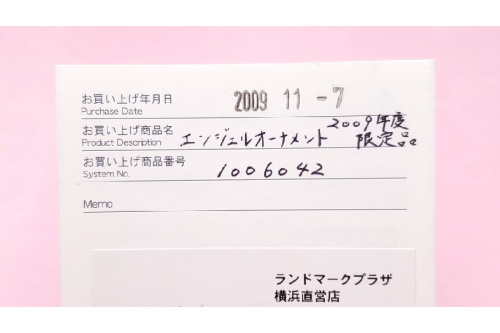 お買い上げ年月日 2009 11 -7
Purchase Date
お買い上げ商品名 エンジェルオーナメント 2009年度
Product Description 限定品
お買い上げ商品番号 1006042
System No.
Memo
ランドマークプラザ
横浜直営店